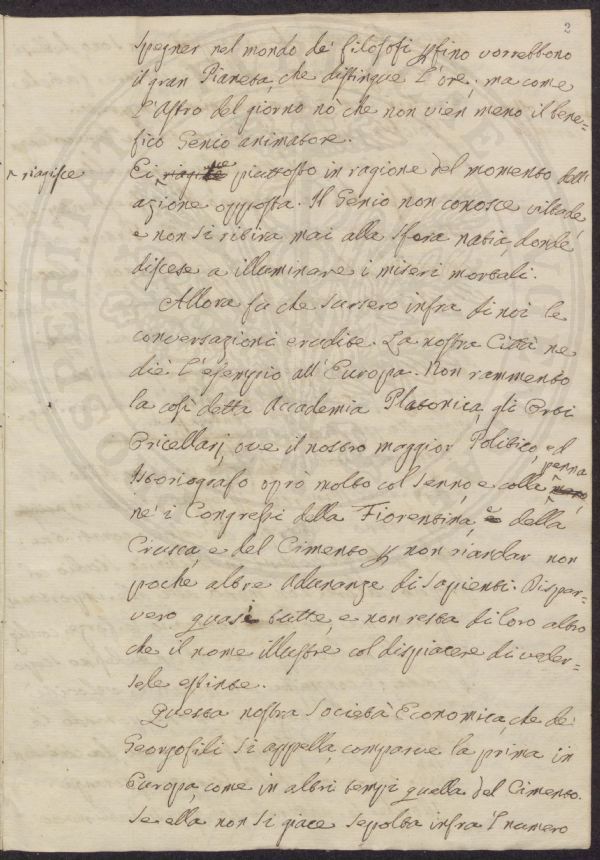 2
spegner nel mondo de' filosofi fino vorrebbono
il gran Pianeta, che distingue l'ore; ma come
l'Astro del giorno nò che non vien meno il bene=
fico Genio animatore.
riagisce
Ei piuttosto in ragione del momento dell'
azione opposta. Il Genio non conosce viltade,
e non si ritira mai alla sfera natia, donde
discese a illuminare i miseri mortali.
Allora fu che sursero infra di noi le
conversazioni erudite. La nostra Città ne
diè l'esempio all'Europa. Non rammento
la così detta Accademia Platonica, gli Orti
Oricellarj, ove il nostro maggior Politico, ed
penna
Istoriografo oprò molto col senno, e colla
nè i Congressi della Fiorentina, della
Crusca, e del Cimento non riandar non
poche altre Adunanze di Sapienti. Dispar=
vero quasi tutte, e non resta di loro altro
che il nome illustre col dispiacere di veder=
sele estinte.
Questa nostra Società Economica, che de'
Georgofili si appella, comparve la prima in
Europa, come in altri tempi quella del Cimento.
Se ella non si giace sepolta infra 'l numero